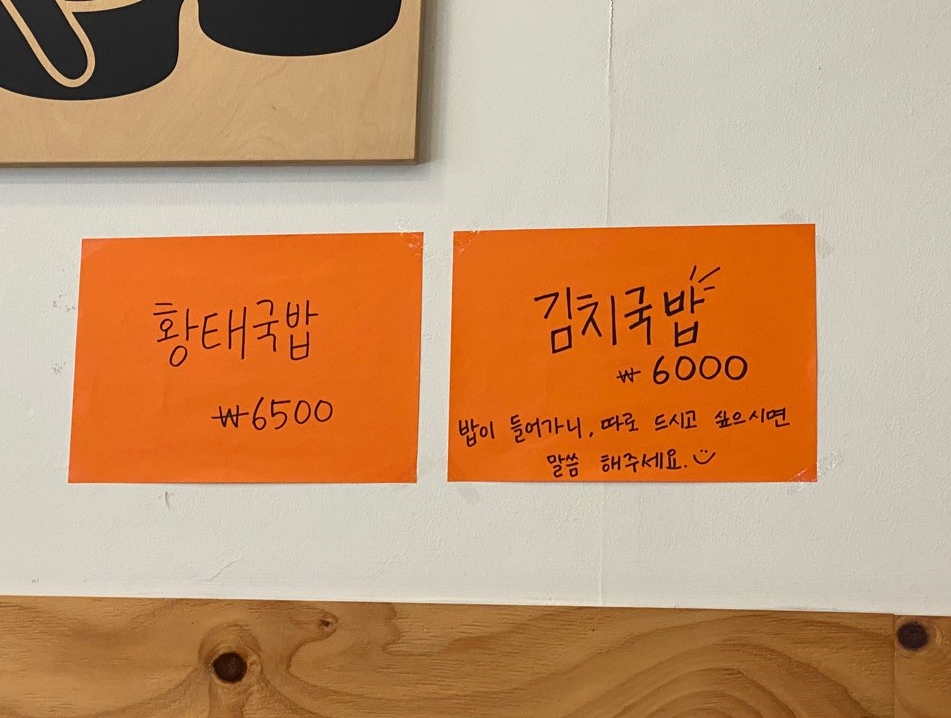 황태국밥
₩6500
김치국밥
₩6000
밥이 들어가니, 따로 드시고 싶으시면
말씀 해주세요.